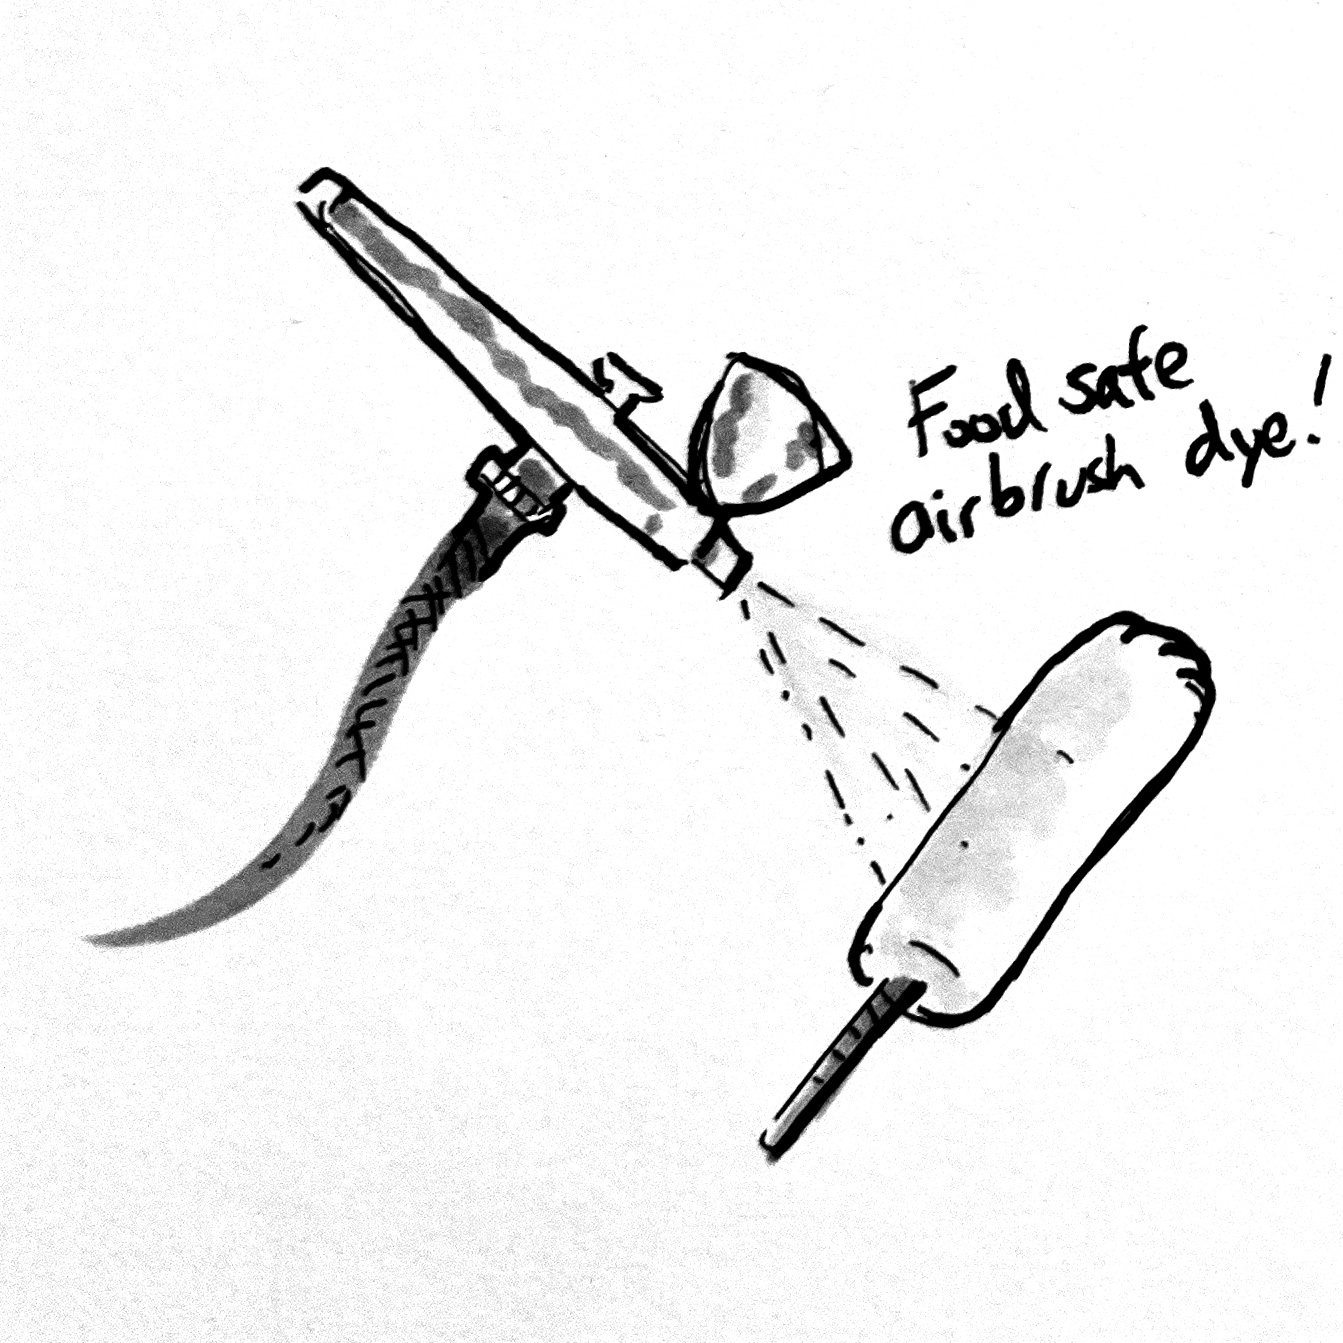 Food safe
airbrush dye!